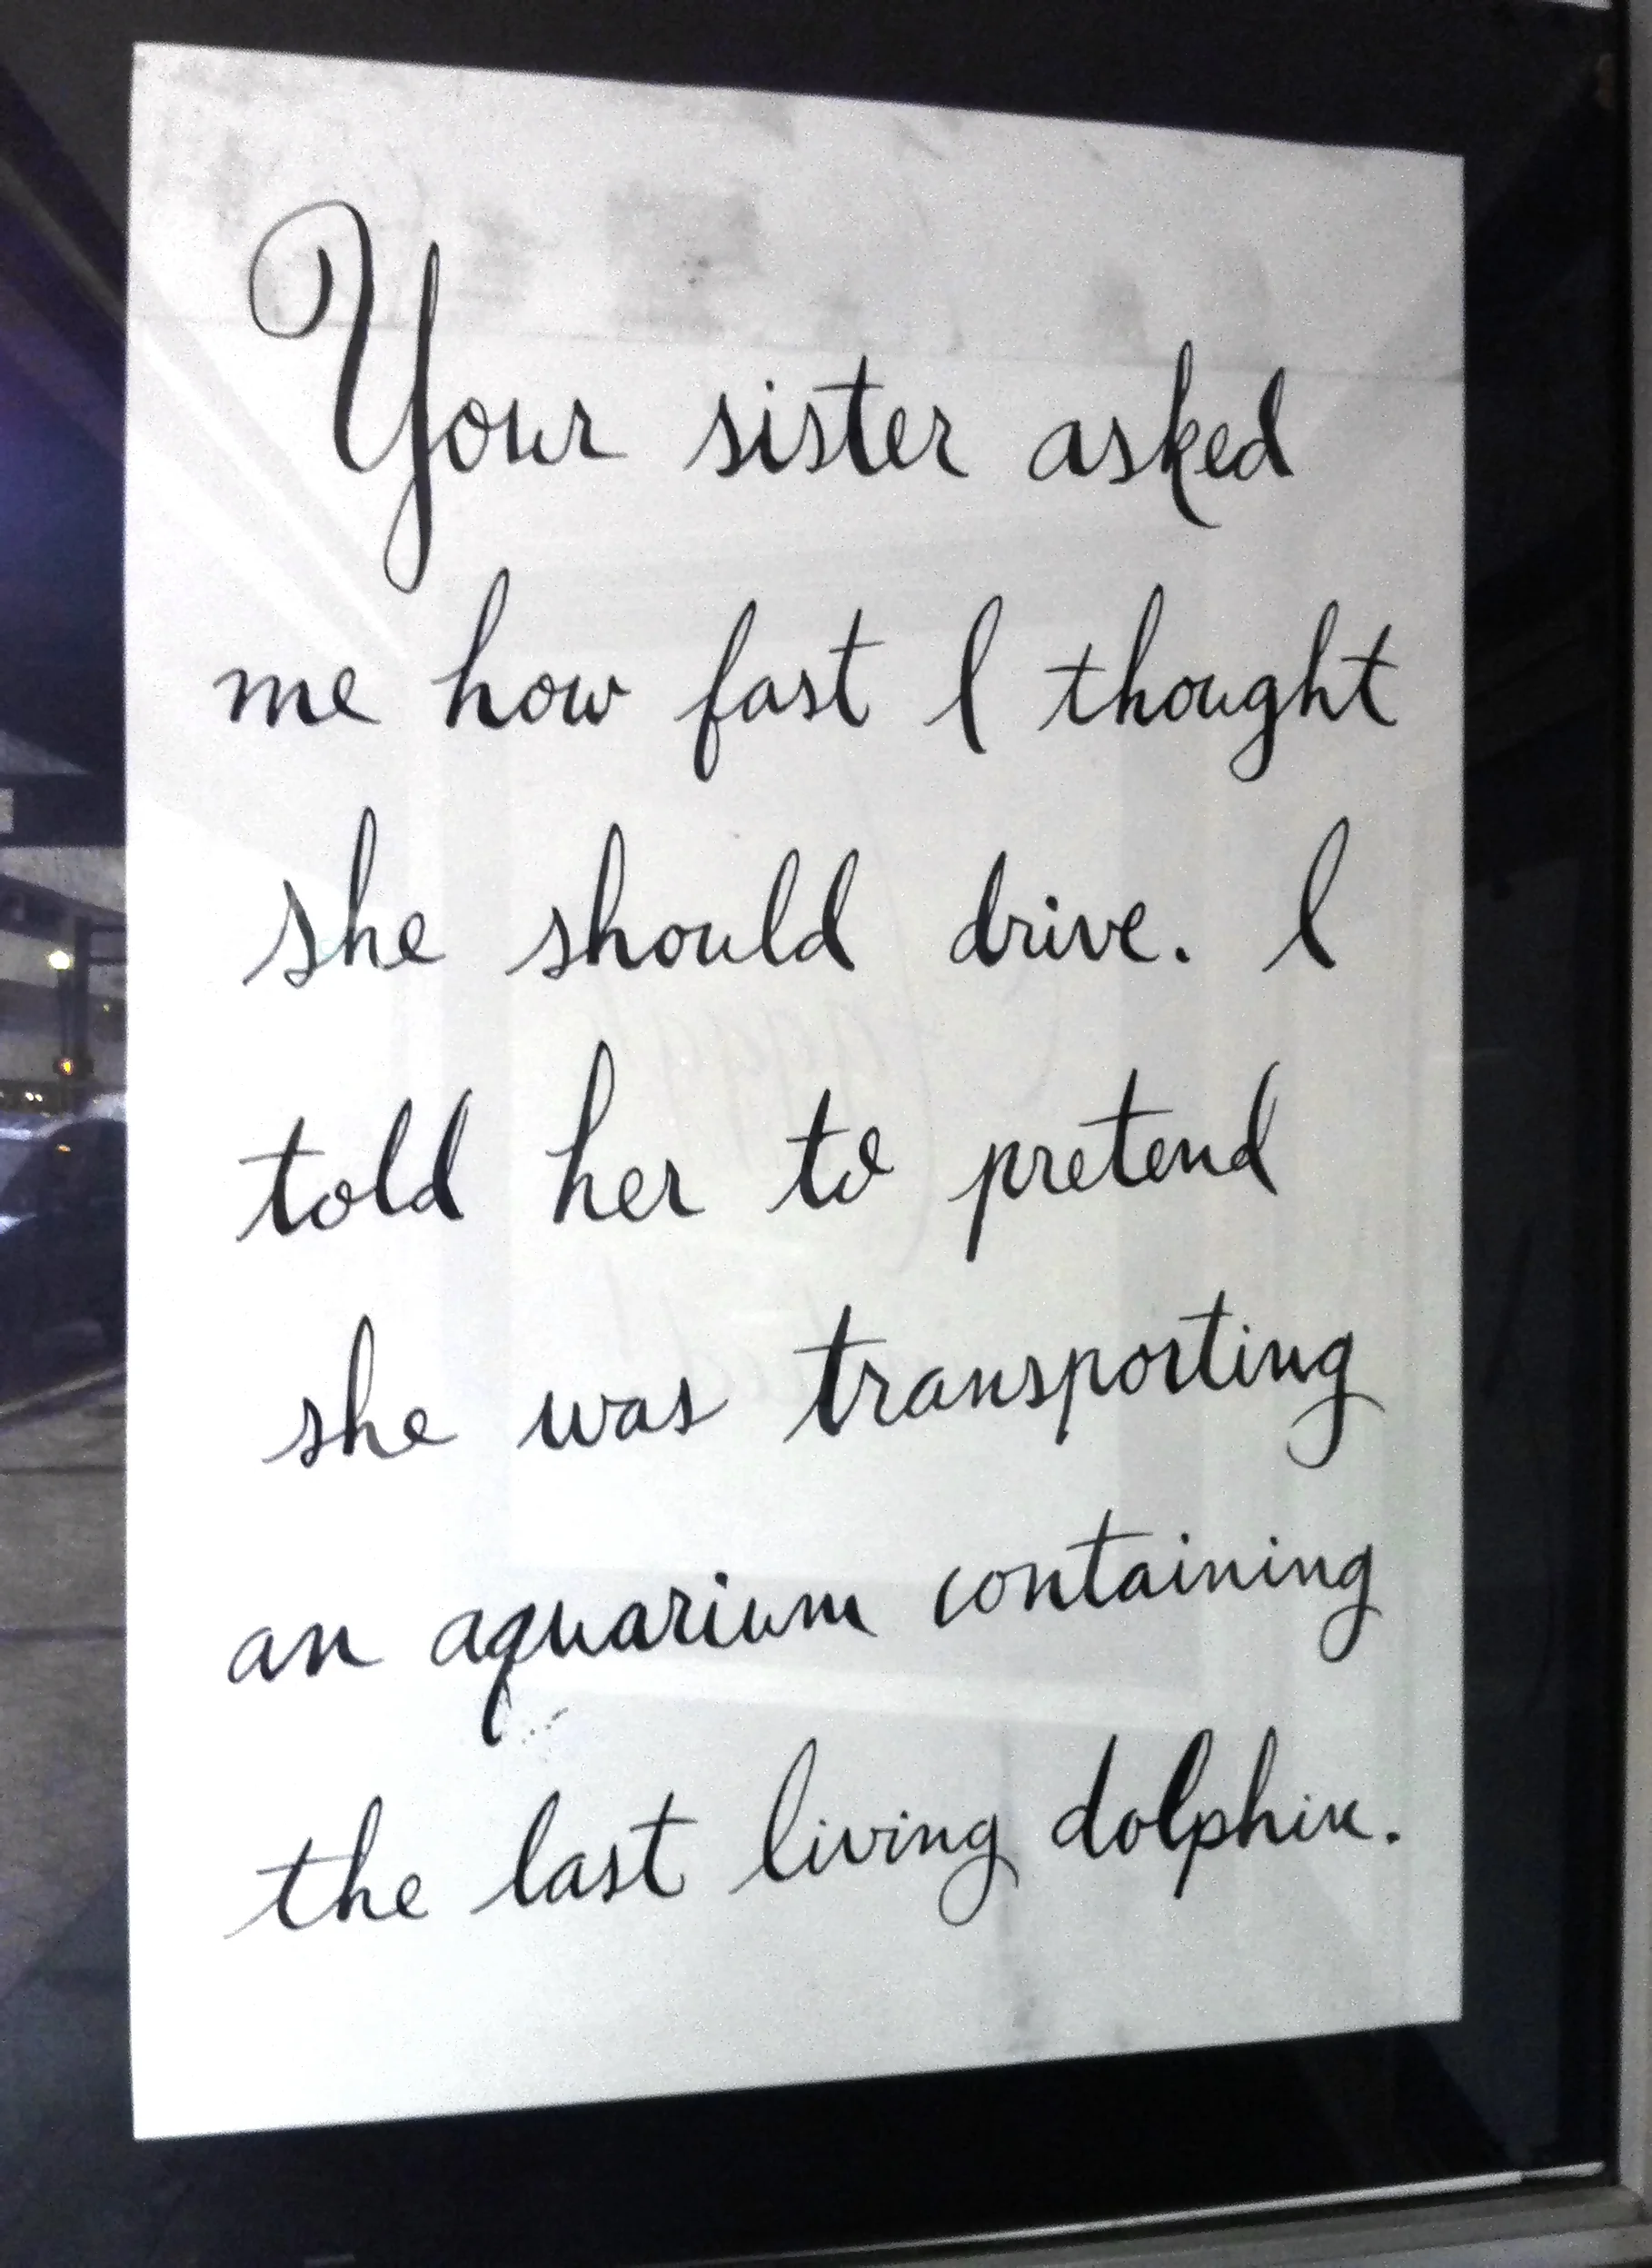 Your sister asked
me how fast I thought
she should drive. I
told her to pretend
she was transporting
an aquarium containing
the last living dolphin.